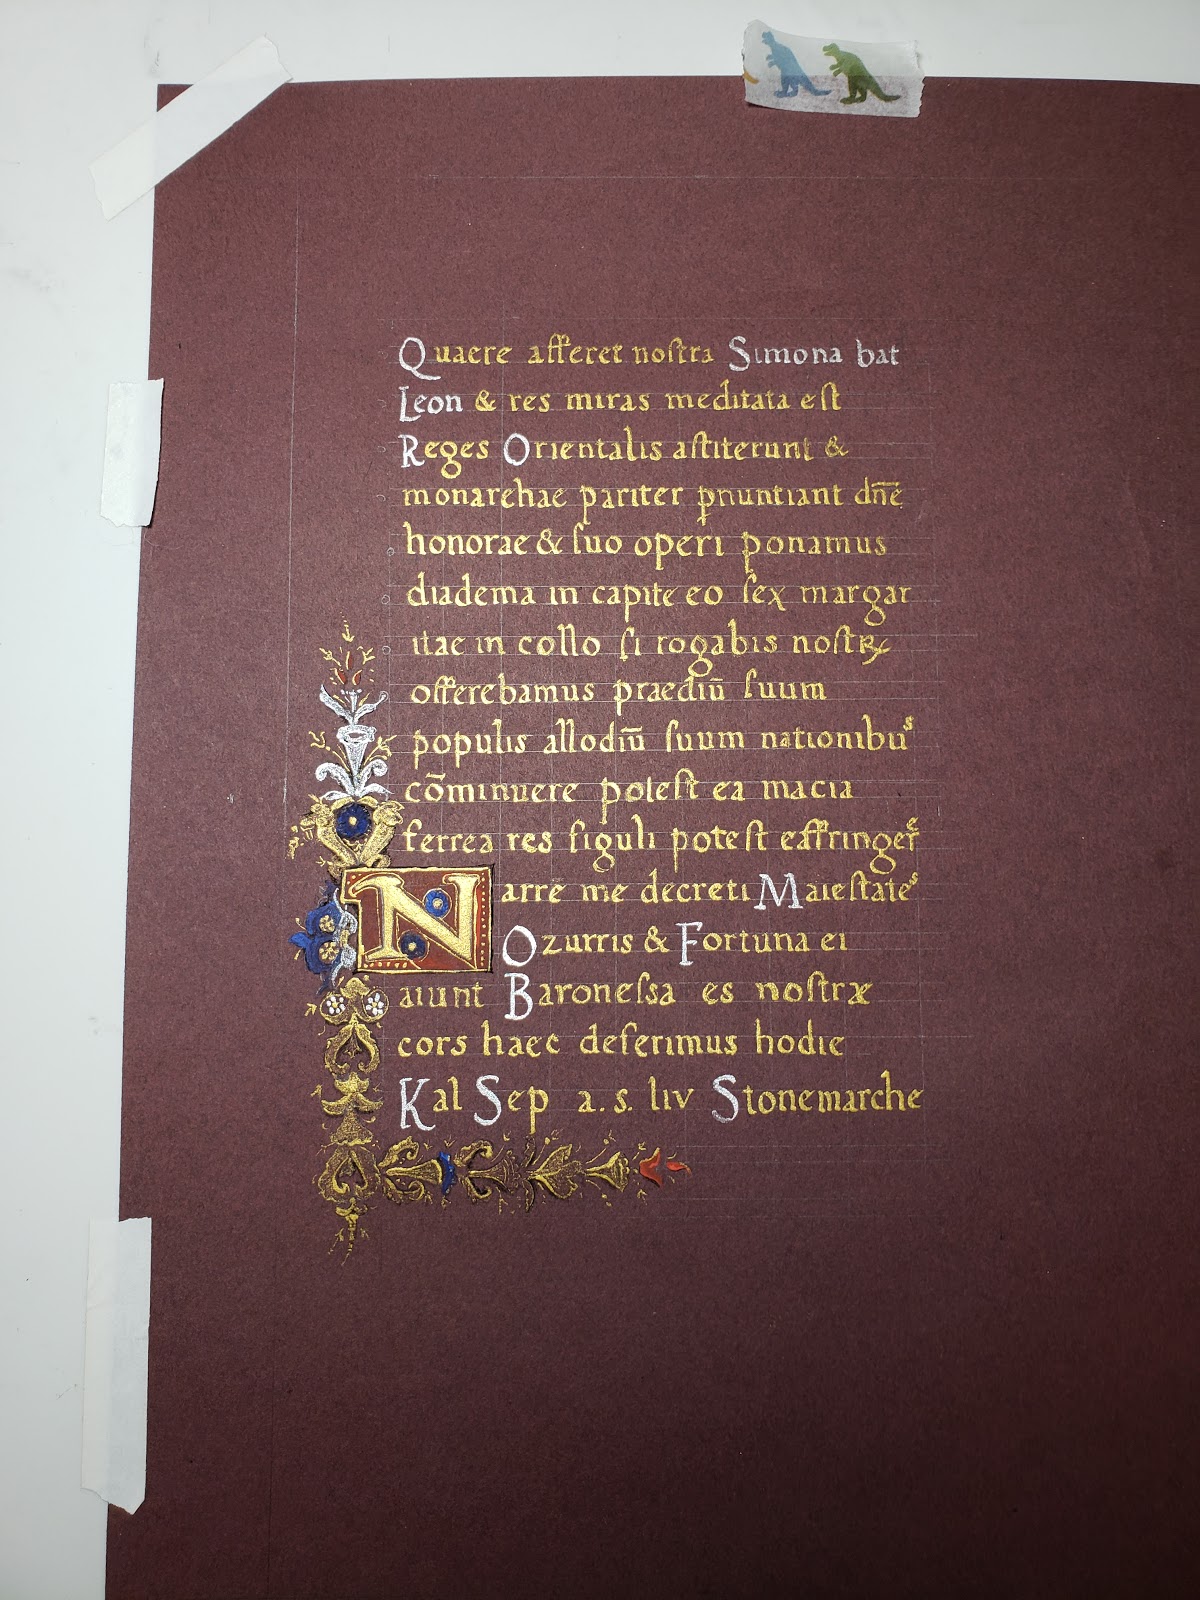 Quaere afferet noſtra Simona bat
Leon & res miras meditata eſt
Reges Orientalis aſtiterunt &
monarchae pariter p̱nuntiant dn̄e
honorae & ſuo operi ponamus
diadema in capite eo ſex margar
itae in collo ſi rogabis noſtꝝ
offerebamus praediū ſuum
populis allodiū ſuum nationibuˢ
cōminuere poteſt ea macia
ferrea res ſiguli poteſt eaffringerᵉ
Narrē me decreti Maieſtateˢ
Ozurris & Fortuna ei
aiunt Baroneſsa es noſtræ
cors haec deferimus hodie
Kal Sep a.s. liv Stonemarche